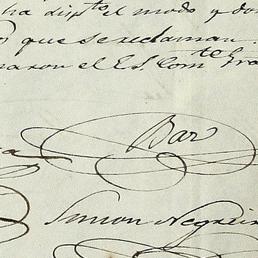 ha disp.to el modo y do
que se reclaman
maron el E.S. Com.te Gra
Bar
Simon Negrei